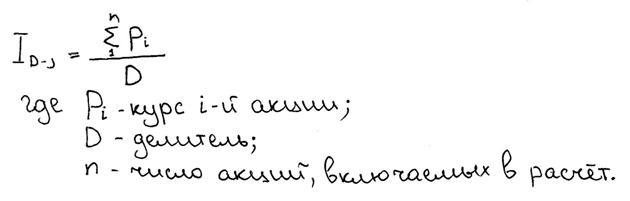 I_{D-J} = \frac{\sum_{1}^{n} P_i}{D}
где P_i - курс i-й акции;
D - делитель;
n - число акций, включаемых в расчёт.